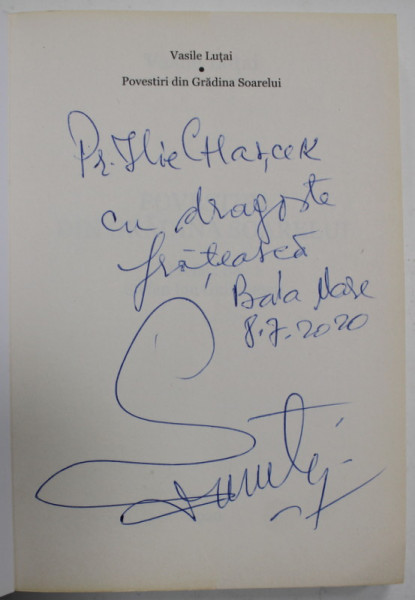 Vasile Luțai
•
Povestiri din Grădina Soarelui
Pr. Ilie
cu dragoste
frățească
Baia Mare
8.7.2020